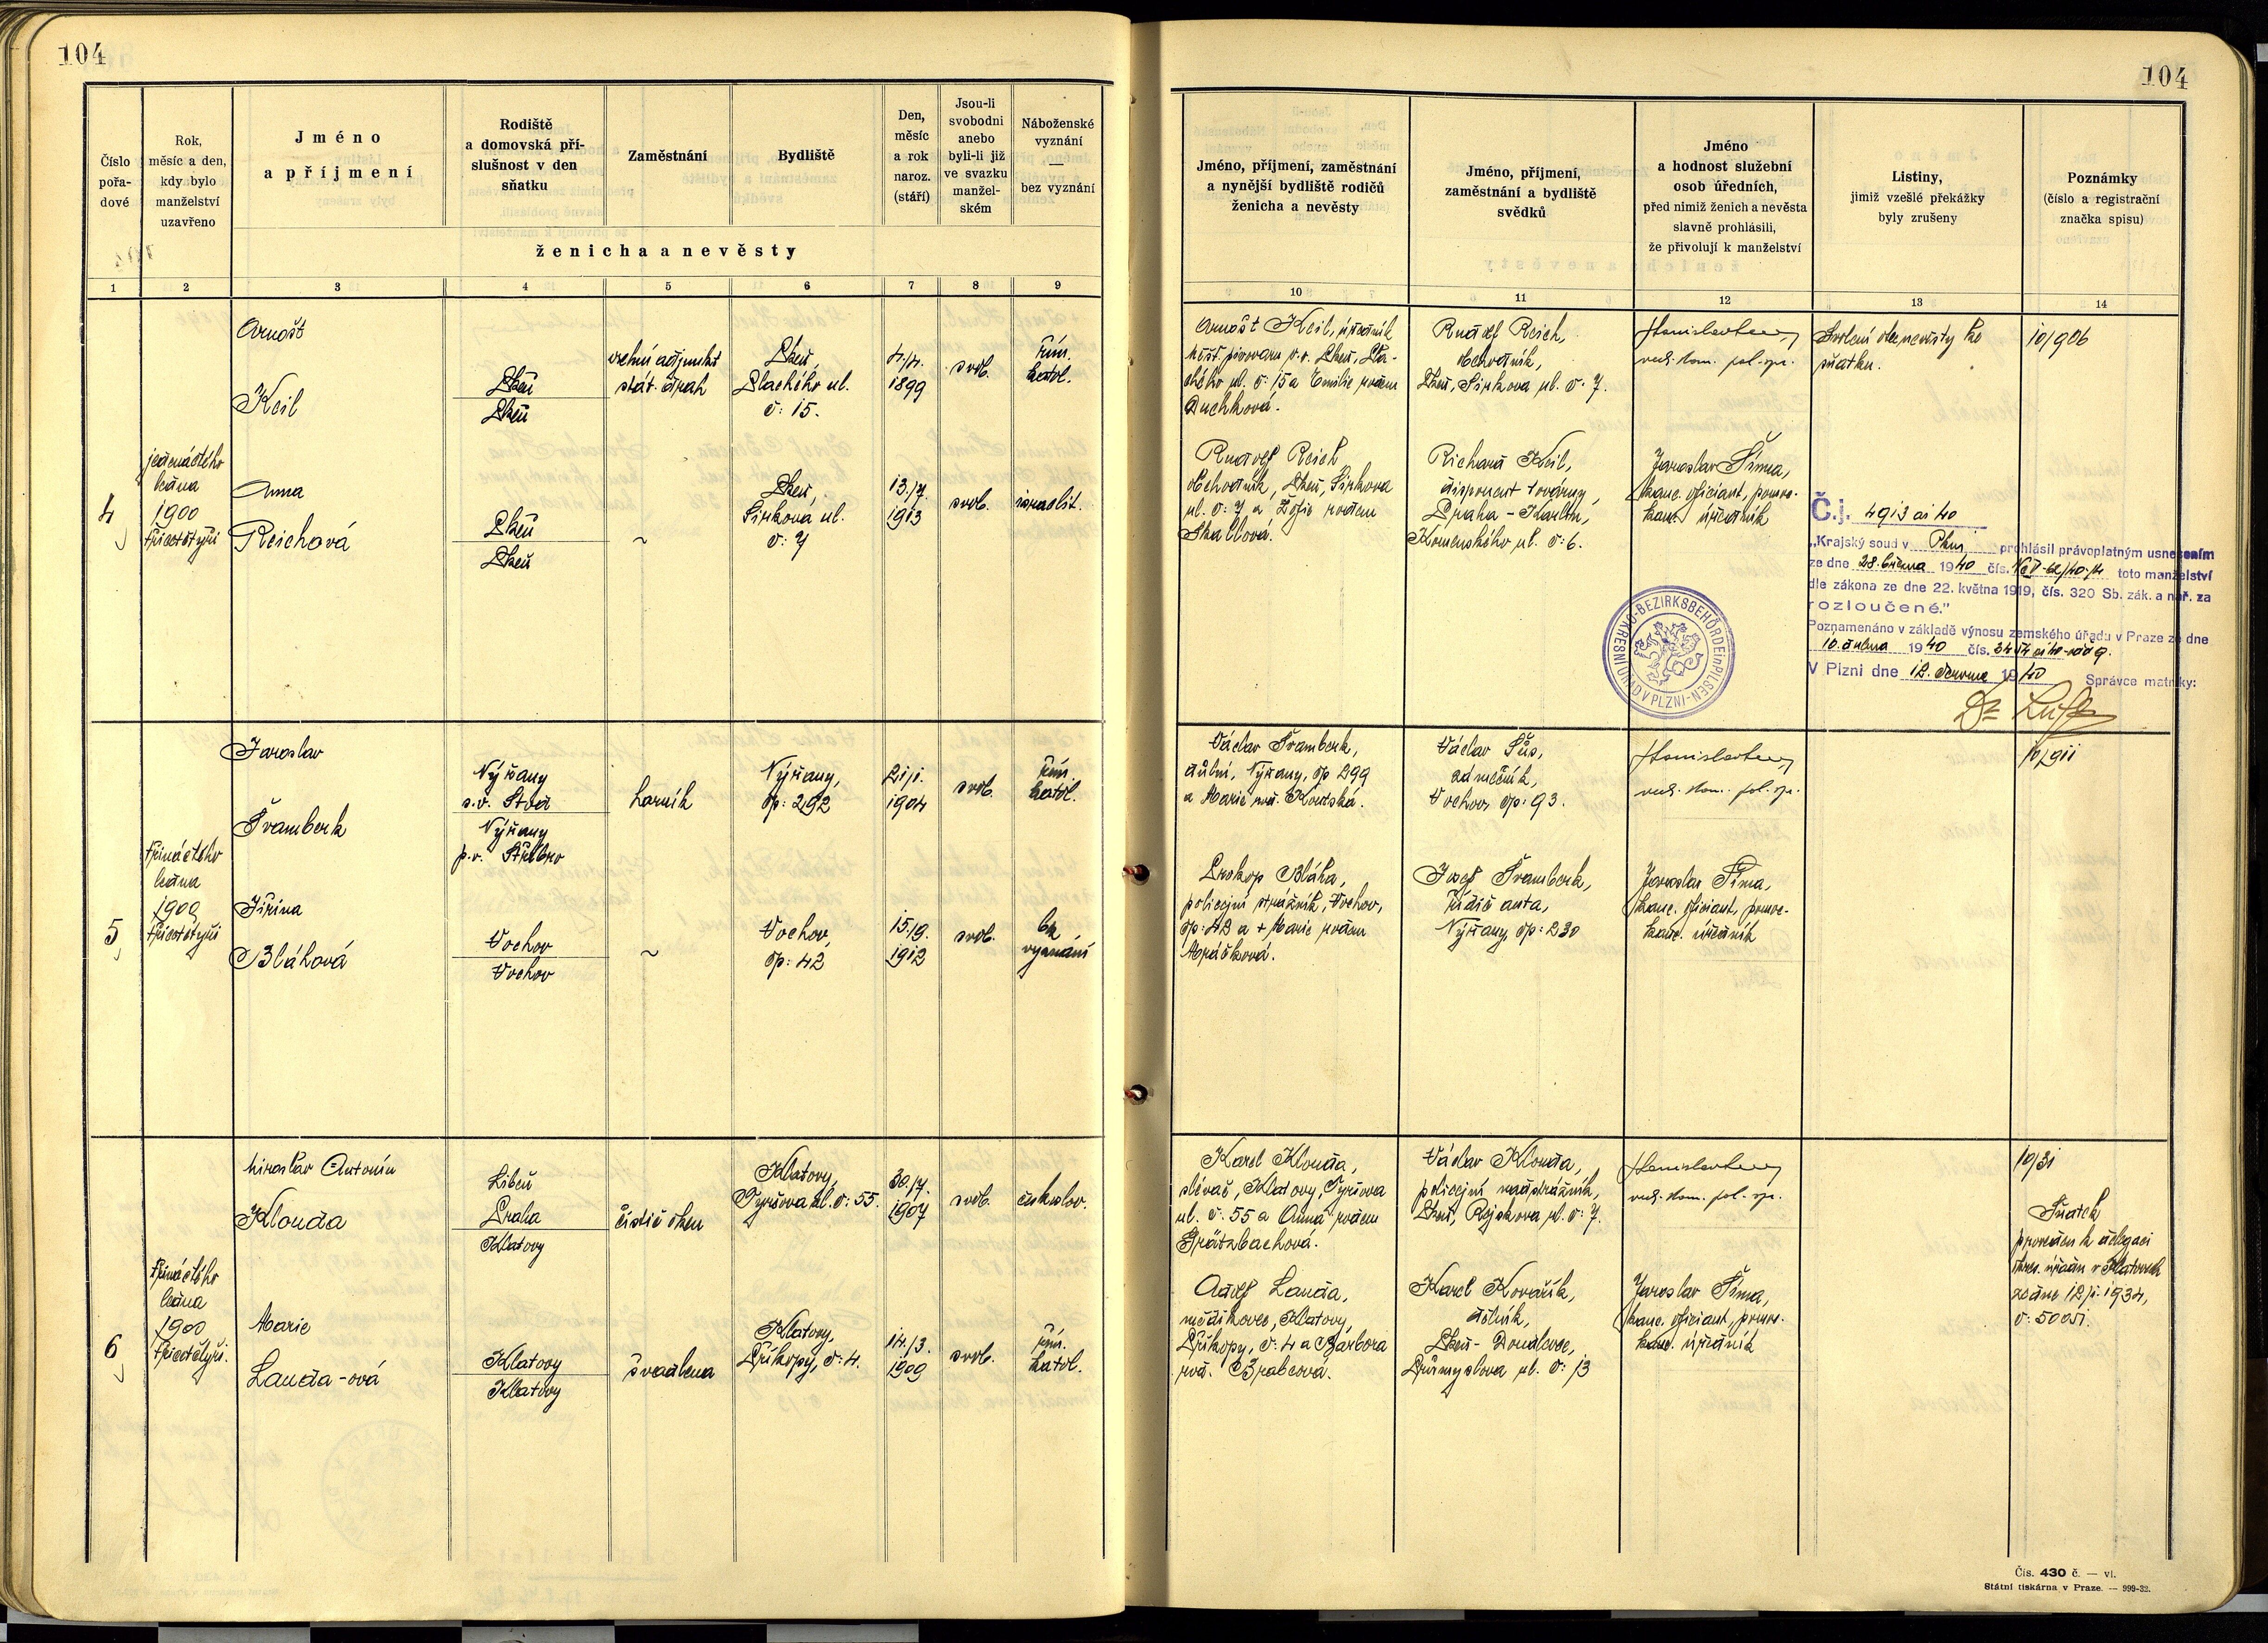 104
104
Číslo
pořa-
dové
Rok,
měsíc a den,
kdy bylo
manželství
uzavřeno
Jméno
a příjmení
Rodiště
a domovská pří-
slušnost v den
sňatku
Zaměstnání
Bydliště
Den,
měsíc
a rok
naroz.
(stáří)
Jsou-li
svobodni
anebo
byli-li již
ve svazku
manžel-
ském
Náboženské
vyznání
—
bez vyznání
ženicha a nevěsty
1 2 3 4 5 6 7 8 9
Jméno, příjmení, zaměstnání
a nynější bydliště rodičů
ženicha a nevěsty
Jméno, příjmení,
zaměstnání a bydliště
svědků
Jméno
a hodnost služební
osob úředních,
před nimiž ženich a nevěsta
slavně prohlásili,
že přivolují k manželství
Listiny,
jimiž vzešlé překážky
byly zrušeny
Poznámky
(číslo a registrační
značka spisu)
10 11 12 13 14
4
jedenáctého
ledna
1900
třicetčtyři
Arnošt
Keil
Plzeň
Plzeň
vrchní adjunkt
stát. drah
Plzeň,
Plachého ul.
č: 15.
4./4.
1899
svob.
řím.
katol.
Anna
Reichová
Plzeň
Plzeň
~
Plzeň,
Sirková ul.
č: 7
13./7.
1913
svob.
israelit.
Arnošt Keil, úředník
měšť. pivovaru v.v. Plzeň, Pla-
chého ul. č: 15 a Emilie rozem
Duchková.
Rudolf Reich,
obchodník, Plzeň, Sirkova
ul. č: 7 a Žofie rozem
Rudolf Reich,
obchodník,
Plzeň, Sirkova ul. č: 7.
Richard Keil,
disponent továrny,
Praha - Karlín,
Komenského ul. č: 6.
rad. kom. pol. spr.
Jaroslav Šíma,
kanc. oficiant, pomoc.
kanc. úředník
Svolení otce nevěsty ke
sňatku.
10/906
Č.j. 4913 ai 40
„Krajský soud v Plzni prohlásil právoplatným usnesením
ze dne 28. března 1940 čís. toto manželství
dle zákona ze dne 22. května 1919, čís. 320 Sb. zák. a nař. za
rozloučené."
Poznamenáno v základě výnosu zemského úřadu v Praze ze dne
10. dubna 1940 čís.
V Plzni dne 12. června 1940
Správce matriky:
OKRESNÍ ÚŘAD V PLZNI - BEZIRKSBEHÖRDE in PILSEN
5
třináctého
ledna
1900
třicetčtyři
Jaroslav
Švamberk
Nýřany
Nýřany
p.o. Stříbro
horník
Nýřany,
čp: 292
21/1.
1904
svob.
řím.
katol.
Jiřina
Bláhová
Vochov
Vochov
~
Vochov,
čp: 42
15./9.
1912
svob.
bez
vyznání
Václav Švamberk,
důlní, Nýřany, čp 299
a Marie roz. Koutská.
Prokop Bláha,
policejní strážník, Vochov,
čp: 42 a + Marie rozem
Mráčková.
Václav Šůs,
zámečník,
Vochov, čp: 93.
Josef Švamberk,
řidič auta,
Nýřany, čp: 230
rad. kom. pol. spr.
Jaroslav Šíma,
kanc. oficiant, pomoc.
kanc. úředník
10/911
6
třináctého
ledna
1900
třicetčtyři.
Miroslav Antonín
Klouda
Libeň
Praha
Klatovy
čistič oken
Klatovy,
Tyršova ul. č: 55.
30./7.
1907
svob.
českoslov.
Marie
Lauda-ová
Klatovy
Klatovy
švadlena
Klatovy,
Příkopy, č: 4.
14./3.
1909
svob.
řím.
katol.
Karel Klouda,
slévač, Klatovy, Tyršova
ul. č: 55 a Anna rozem
Grätzbachová.
Adolf Lauda,
mědikovec, Klatovy,
Příkopy, č: 4 a Barbora
roz. Brabcová.
Václav Klouda,
policejní nadstrážník,
Plzeň, Rejskova ul. č: 7.
Karel Kovářík,
dělník,
Plzeň - Doudlevce,
Průmyslova ul. č: 13
rad. kom. pol. spr.
Jaroslav Šíma,
kanc. oficiant, pomoc.
kanc. úředník
10/31
Sňatek
proveden k delegaci
okres. úřadu v Klatovech
ze dne 12/1. 1934,
č: 50051.
Čís. 430 č. — vl.
Státní tiskárna v Praze. — 999-32.